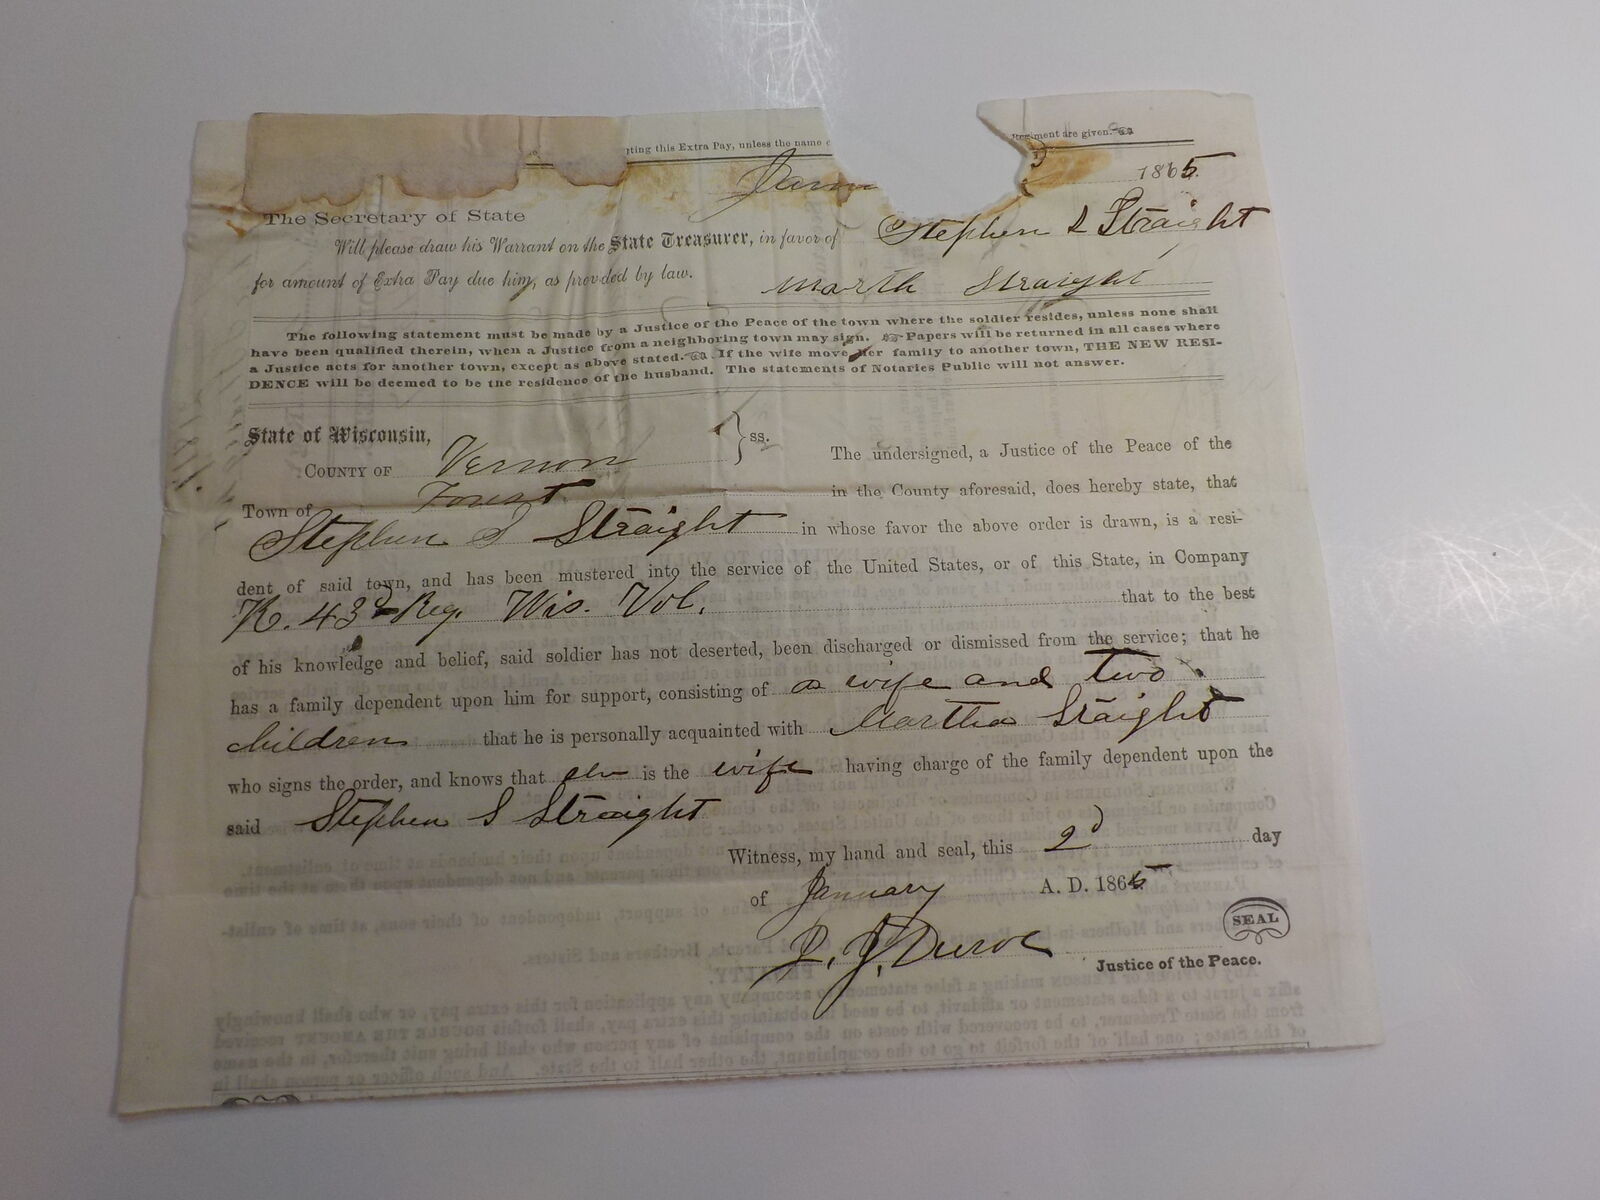 ting this Extra Pay, unless the name
Regiment are given.
1865.
The Secretary of State
Will please draw his Warrant on the State Treasurer, in favor of Stephen S Straight
for amount of Extra Pay due him, as provided by law. Martha Straight
The following statement must be made by a Justice of the Peace of the town where the soldier resides, unless none shall
have been qualified therein, when a Justice from a neighboring town may sign. ☞ Papers will be returned in all cases where
a Justice acts for another town, except as above stated. ☜ If the wife move her family to another town, THE NEW RESI-
DENCE will be deemed to be the residence of the husband. The statements of Notaries Public will not answer.
State of Wisconsin, } ss.
COUNTY OF Vernon
The undersigned, a Justice of the Peace of the
Town of Forest in the County aforesaid, does hereby state, that
Stephen S Straight in whose favor the above order is drawn, is a resi-
dent of said town, and has been mustered into the service of the United States, or of this State, in Company
K. 43d Reg. Wis. Vol. that to the best
of his knowledge and belief, said soldier has not deserted, been discharged or dismissed from the service; that he
has a family dependent upon him for support, consisting of a wife and two
children that he is personally acquainted with Martha Straight
who signs the order, and knows that she is the wife having charge of the family dependent upon the
said Stephen S Straight
Witness, my hand and seal, this 2d day
of January A. D. 1865
SEAL
Justice of the Peace.